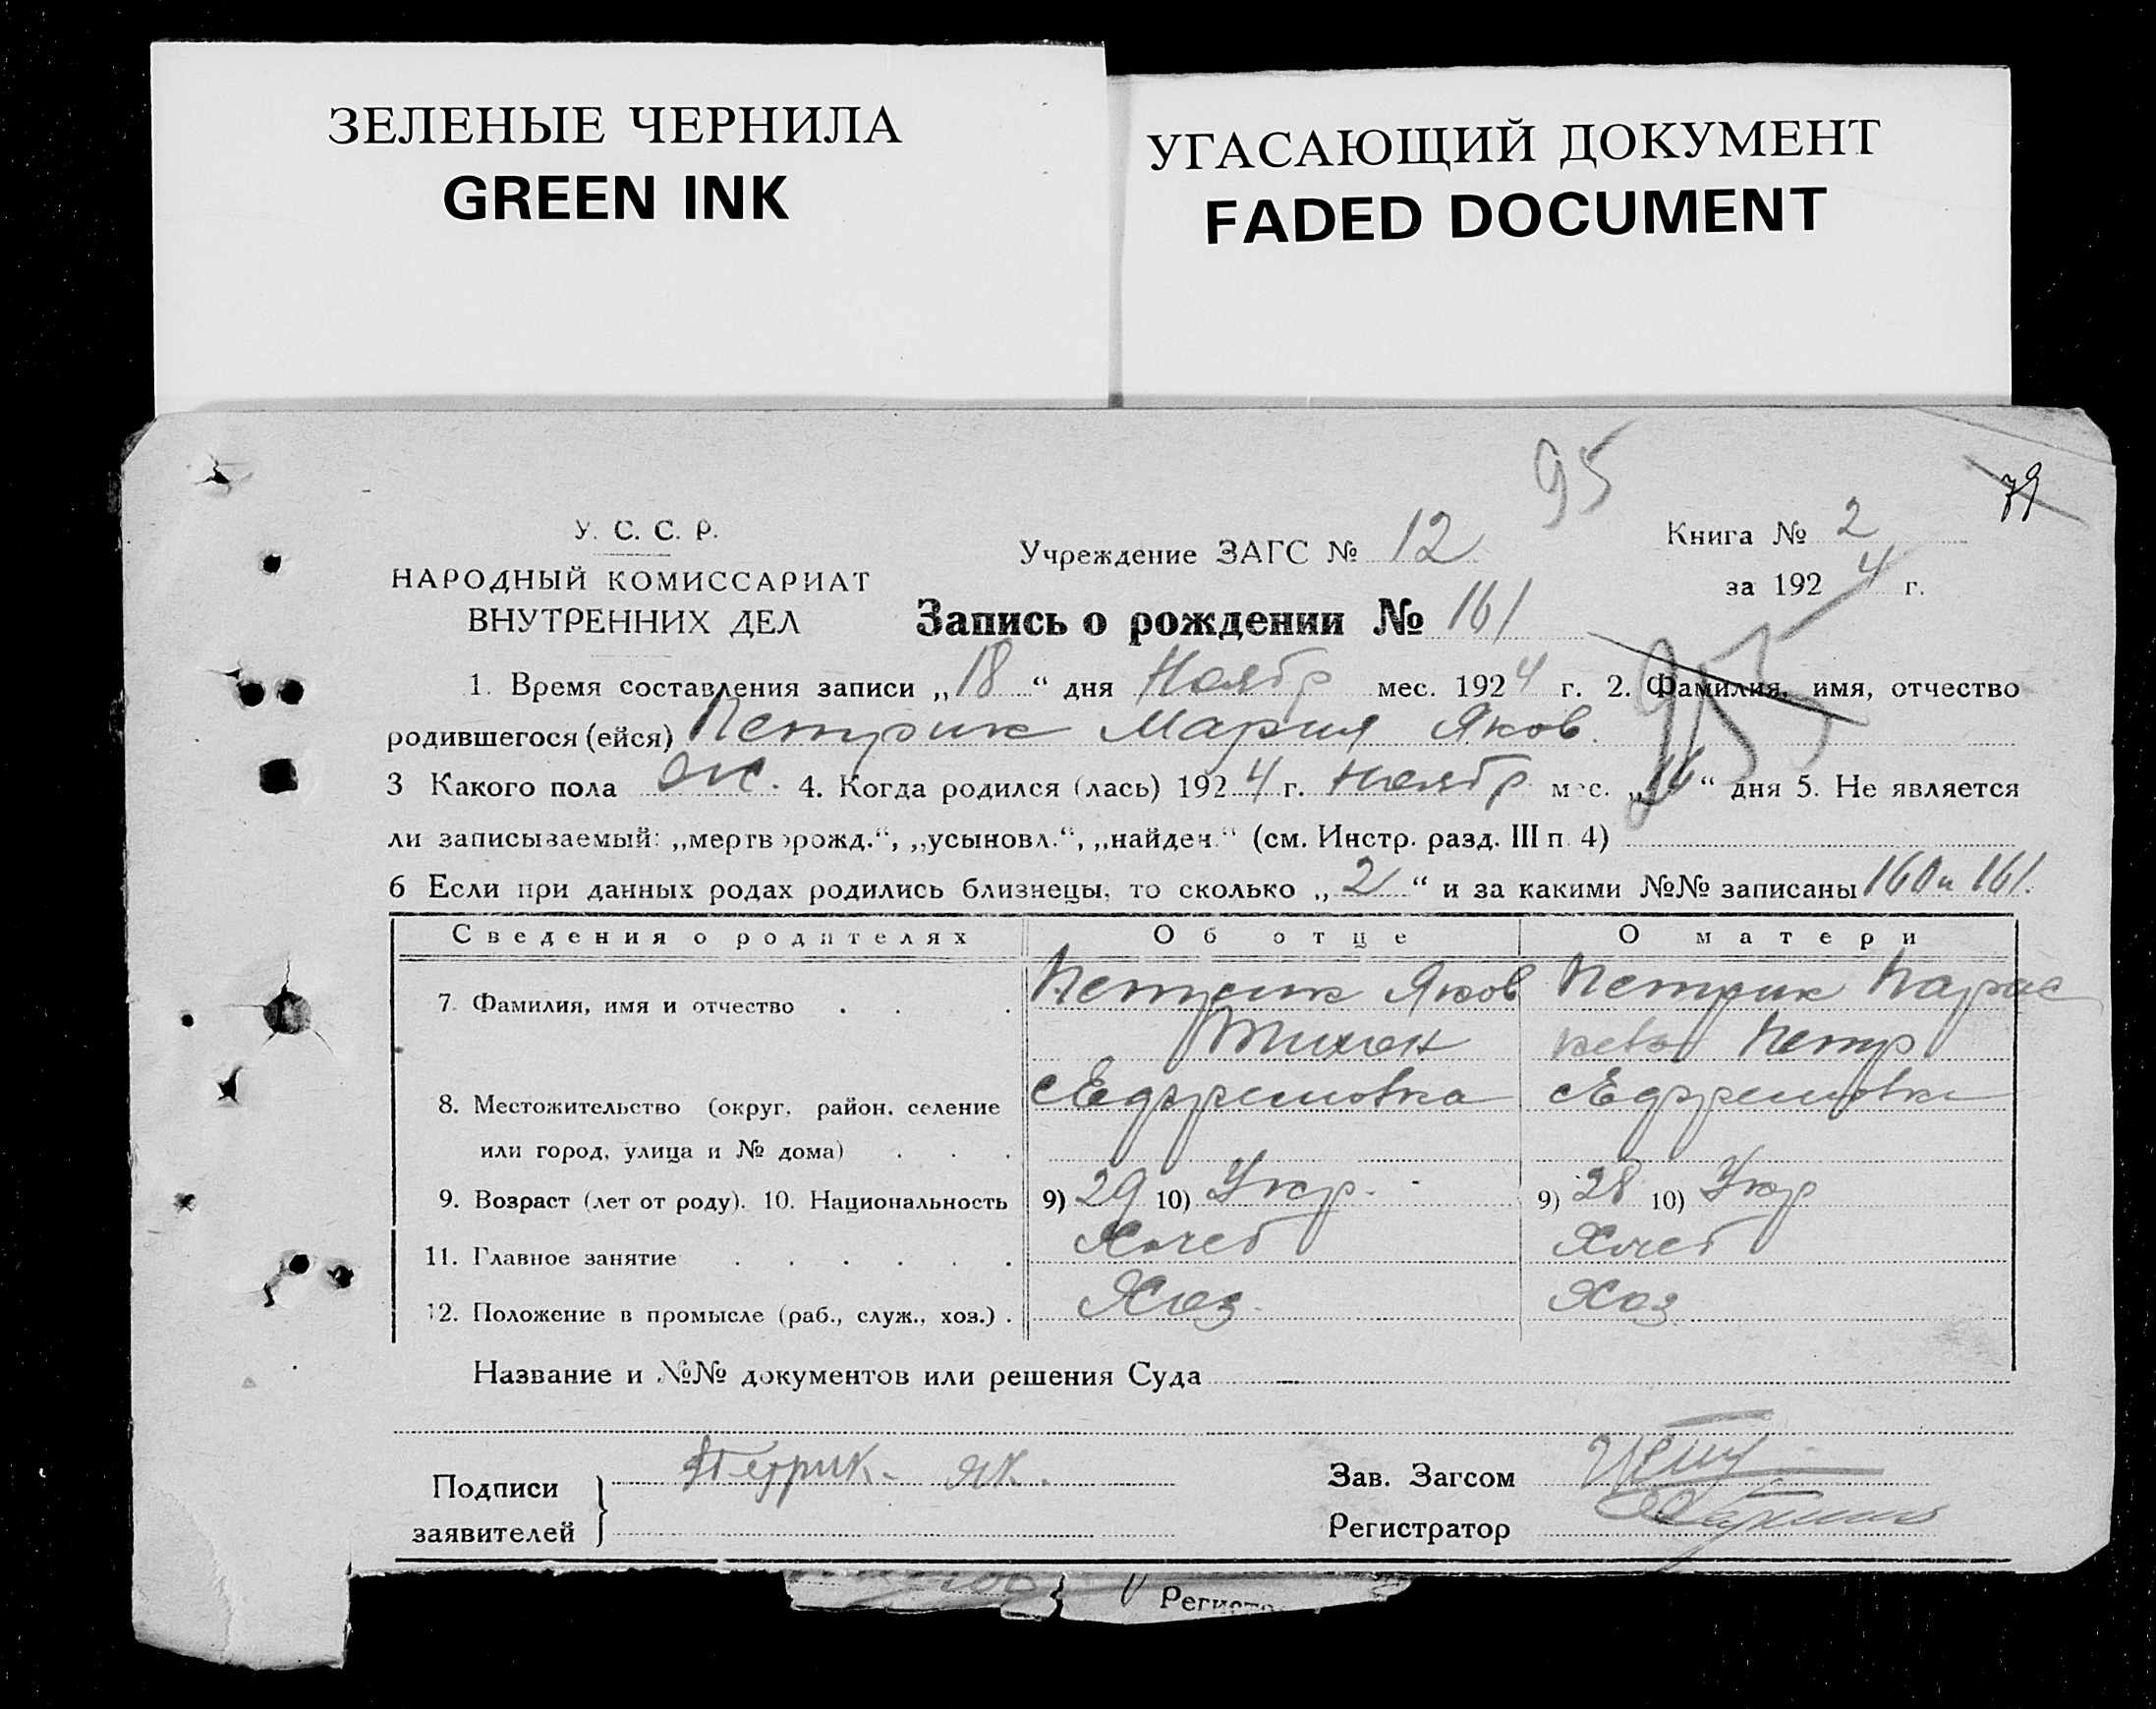 ЗЕЛЕНЫЕ ЧЕРНИЛА
GREEN INK
УГАСАЮЩИЙ ДОКУМЕНТ
FADED DOCUMENT
95
79
У. С. С. Р.
НАРОДНЫЙ КОМИССАРИАТ
ВНУТРЕННИХ ДЕЛ
Учреждение ЗАГС № 12
Книга № 2
за 1924 г.
Запись о рождении № 161
953
1. Время составления записи „18“ дня Ноябр мес. 1924 г. 2. Фамилия, имя, отчество
родившегося (ейся) Петрик Мария Яков.
3 Какого пола Ж. 4. Когда родился (лась) 1924 г. Ноябр мес. „16“ дня 5. Не является
ли записываемый: „мертворожд.“, „усыновл.“, „найден.“ (см. Инстр. разд. III п. 4)
6 Если при данных родах родились близнецы, то сколько „2“ и за какими №№ записаны 160 и 161.
Сведения о родителях Об отце О матери
7. Фамилия, имя и отчество . . . Петрик Яков Петрик Парас
Тихон кева Петр
8. Местожительство (округ, район, селение с Едфремовка с Едфремовка
или город, улица и № дома) . . .
9. Возраст (лет от роду). 10. Национальность 9) 29 10) Укр. 9) 28 10) Укр
11. Главное занятие . . . . . . Хлеб Хлеб
12. Положение в промысле (раб., служ., хоз.) . Хоз. Хоз
Название и №№ документов или решения Суда
Подписи
заявителей
Петрик. Як.
Зав. Загсом
Регистратор
Регистр